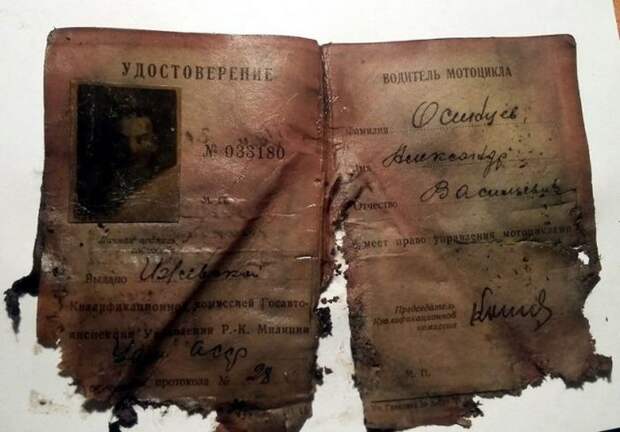 УДОСТОВЕРЕНИЕ
№ 033180
М. П.
Личная подпись
Выдано Ижевской
Квалификационной комиссией Госавто-
инспекции Управления Р.-К. Милиции
Удм АССР
протокола № 28
ВОДИТЕЛЬ МОТОЦИКЛА
Фамилия
Имя Александр
Отчество Васильевич
имеет право управления мотоциклом
Председатель
Квалификационной
комиссии
М. П.